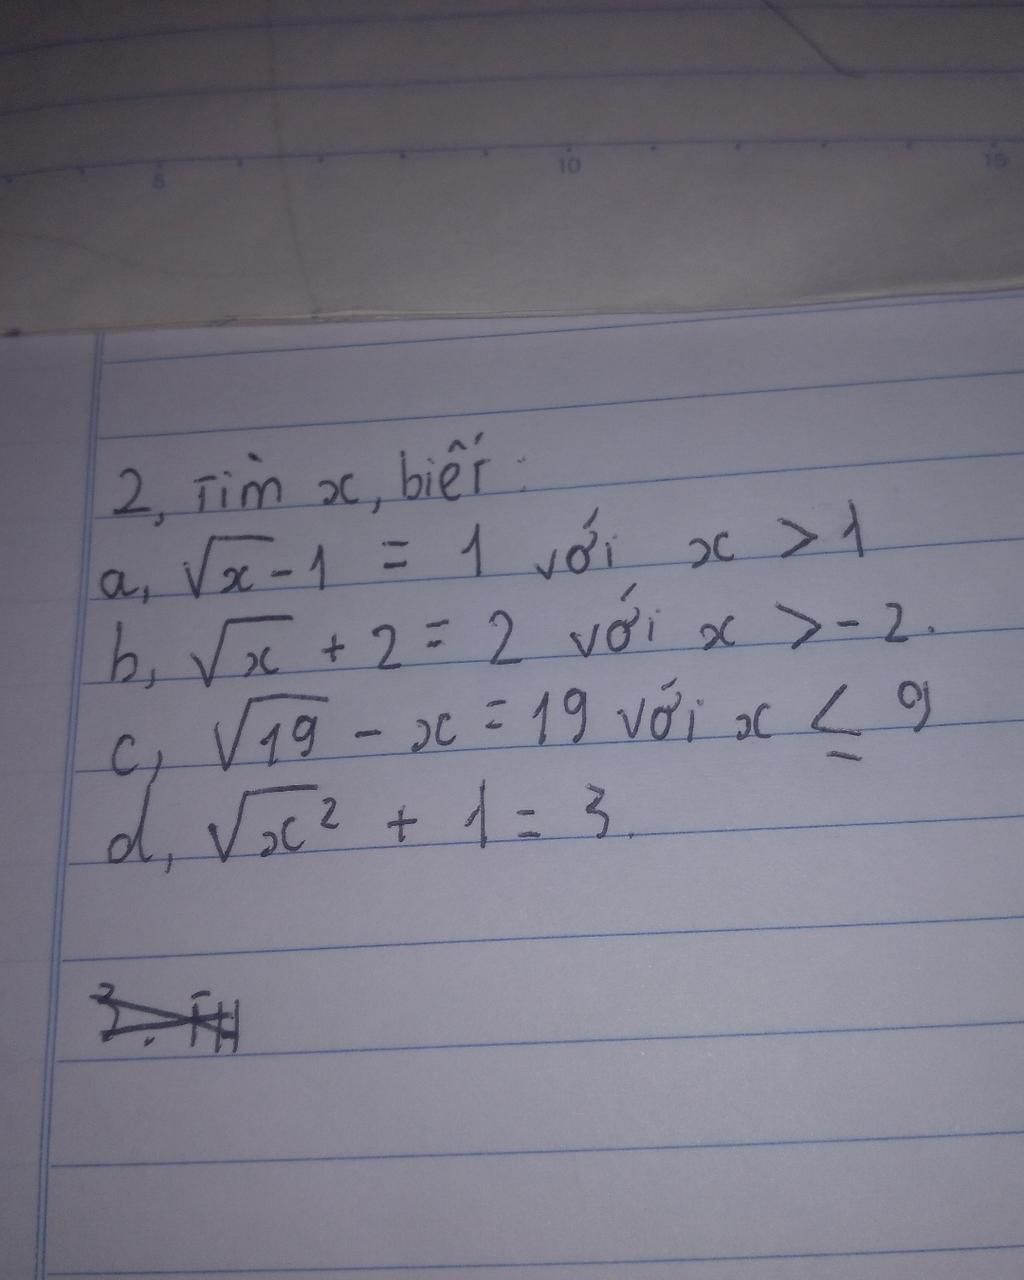 5 10 15
2, Tìm x, biết:
a, √x - 1 = 1 với x > 1
b, √x + 2 = 2 với x > -2.
c, √19 - x = 19 với x ≤ 9
d, √x² + 1 = 3.
3.